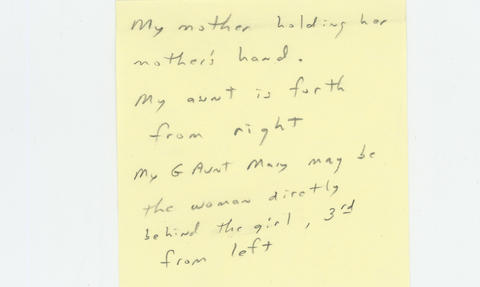 My mother holding her
mother's hand.
My aunt is forth
from right
My G Aunt Mary may be
the woman directly
behind the girl, 3rd
from left